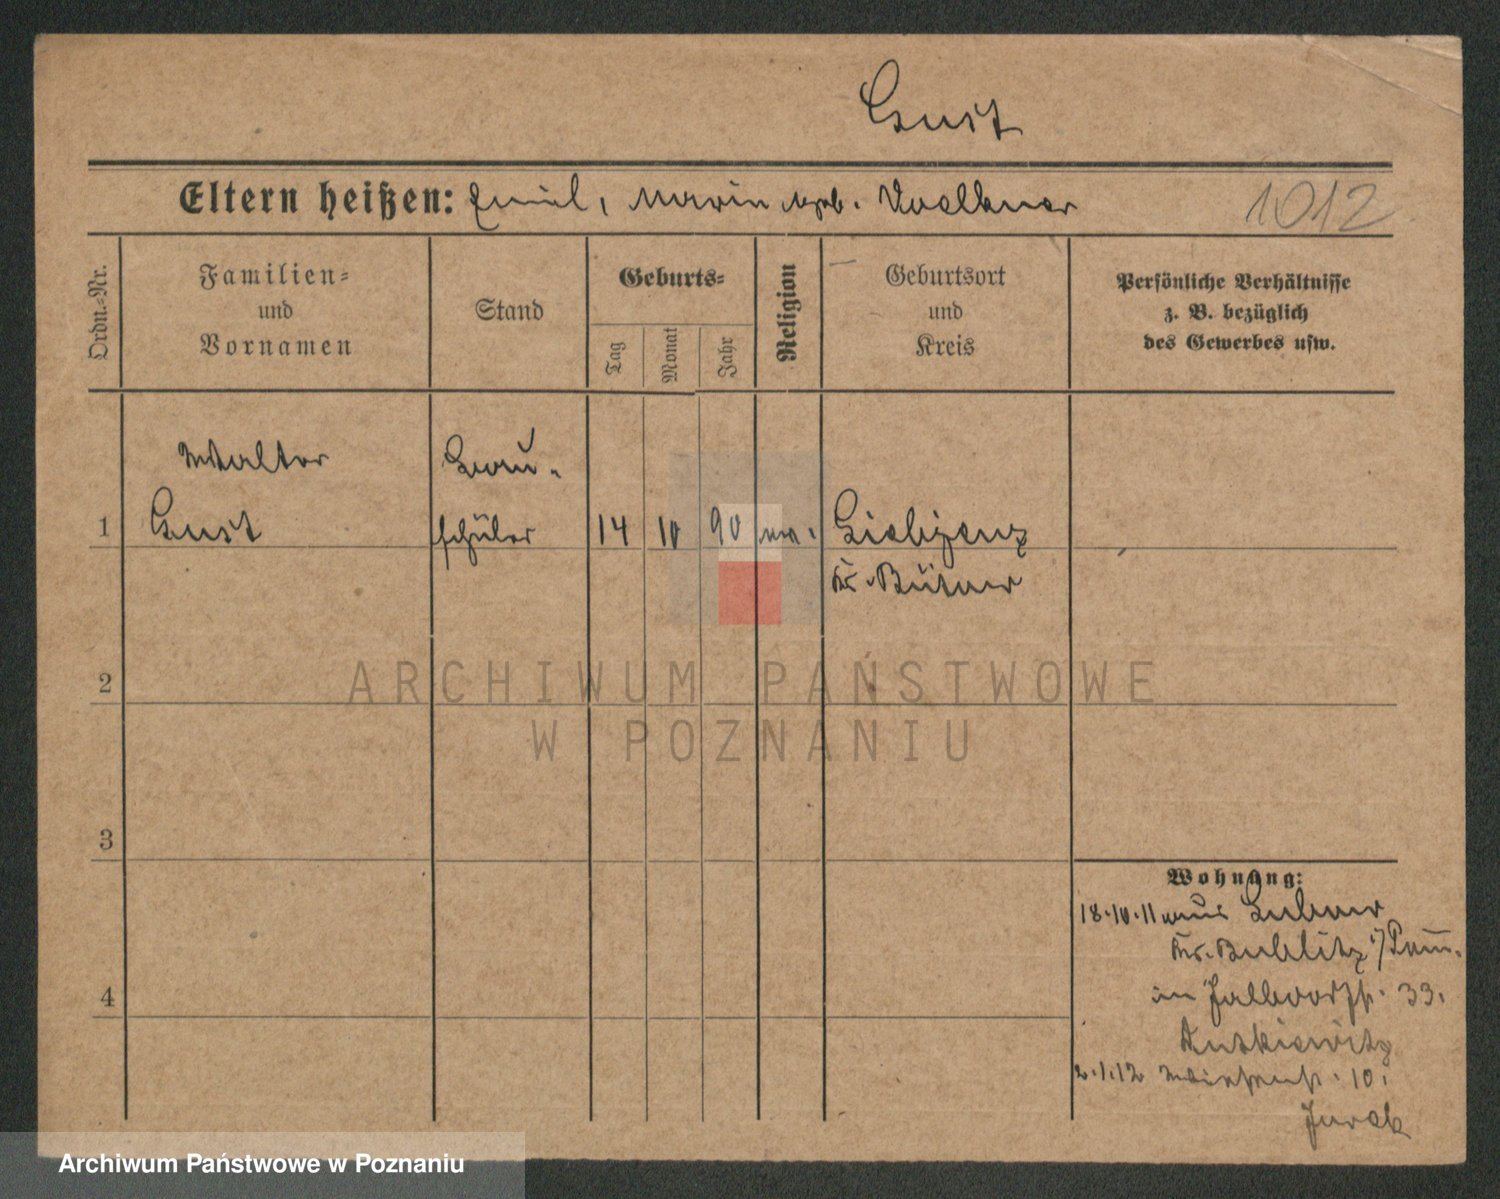 Gust
Eltern heißen: Emil, Marie geb. Voelkner 1012
Ordn.-Nr.
Familien-
und
Vornamen
Stand
Geburts-
Tag
Monat
Jahr
Religion
Geburtsort
und
Kreis
Persönliche Verhältnisse
z. B. bezüglich
des Gewerbes usw.
Walter
Gust
Bau-
schüler
1
14 10 90
Kr. Bütow
2
3
4
ARCHIWUM PAŃSTWOWE
W POZNANIU
Wohnung:
18.10.11 aus
Kr. Bublitz i/Pom.
33.
2.1.12 10.
Archiwum Państwowe w Poznaniu